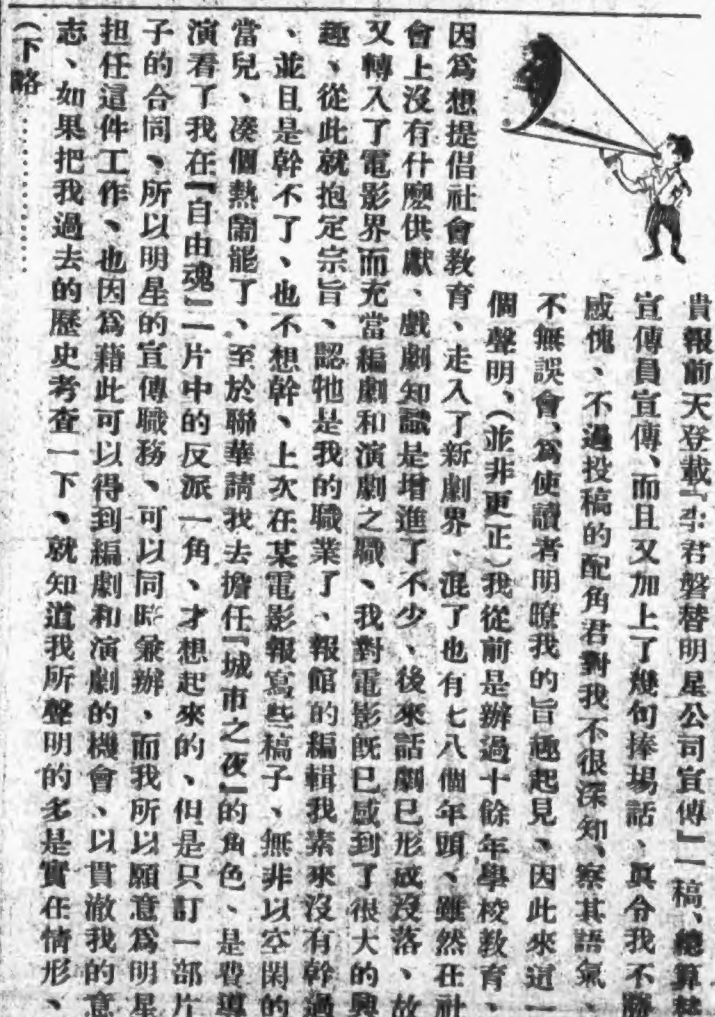 貴報前天登載『李君磐替明星公司宣傳』一稿、總算替
宣傳員宣傳、而且又加上了幾句捧場話、眞令我不勝
感愧、不過投稿的配角君對我不很深知、察其語氣、
不無誤會、爲使讀者明瞭我的旨趣起見、因此來這一
個聲明、(並非更正)我從前是辦過十餘年學校教育、
因爲想提倡社會教育、走入了新劇界、混了也有七八個年頭、雖然在社
會上沒有什麼供獻、戲劇知識是增進了不少、後來話劇已形成沒落、故
又轉入了電影界而充當編劇和演劇之職、我對電影旣已感到了很大的興
趣、從此就抱定宗旨、認牠是我的職業了、報館的編輯我素來沒有幹過
、並且是幹不了、也不想幹、上次在某電影報寫些稿子、無非以空閑的
當兒、凑個熱鬧罷了、至於聯華請我去擔任『城市之夜』的角色、是費導
演看了我在『自由魂』一片中的反派一角、才想起來的、但是只訂一部片
子的合同、所以明星的宣傳職務、可以同時兼辦、而我所以願意爲明星
担任這件工作、也因爲藉此可以得到編劇和演劇的機會、以貫澈我的意
志、如果把我過去的歷史考查一下、就知道我所聲明的多是實在情形、
(下略…………